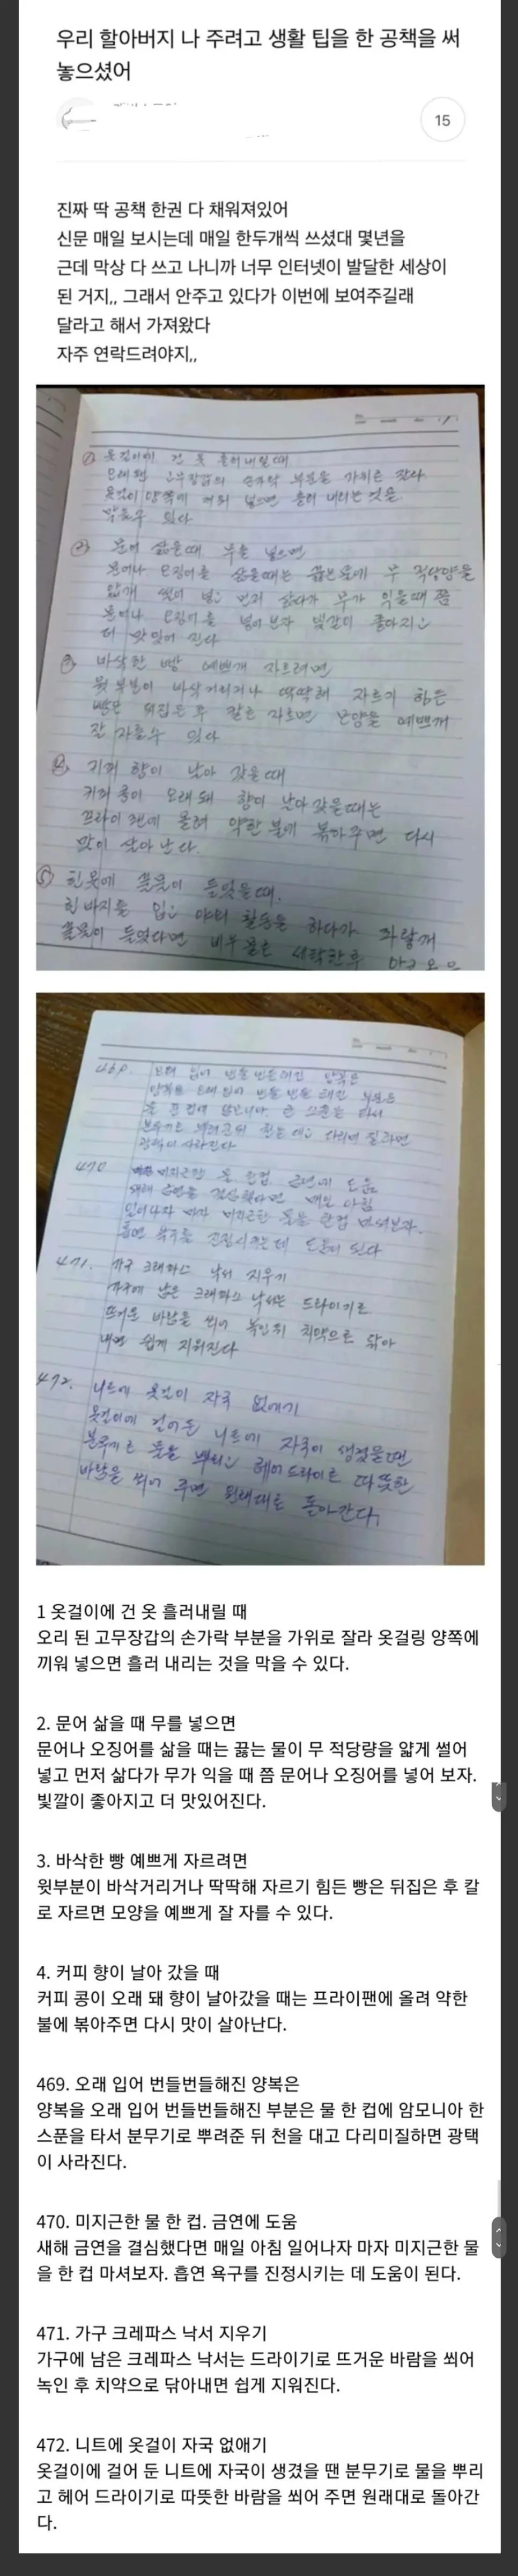 우리 할아버지 나 주려고 생활 팁을 한 공책을 써
놓으셨어
15
진짜 딱 공책 한권 다 채워져있어
신문 매일 보시는데 매일 한두개씩 쓰셨대 몇년을
근데 막상 다 쓰고 나니까 너무 인터넷이 발달한 세상이
된 거지,, 그래서 안주고 있다가 이번에 보여주길래
달라고 해서 가져왔다
자주 연락드려야지,,
① 옷걸이에 건 옷 흘러내릴때
오래된 고무장갑의 손가락 부분을 가위로 잘라
옷걸이 양쪽에 끼워 넣으면 흘러 내리는 것을
막을수 있다
② 문어 삶을때 무를 넣으면
문어나 오징어를 삶을때는 끓는물에 무 적당양을
얇게 썰어 넣고 먼저 삶다가 무가 익을때 쯤
문어나 오징어를 넣어보자 빛깔이 좋아지고
더 맛있어 진다
③ 바삭한 빵 예쁘게 자르려면
윗부분이 바삭거리거나 딱딱해 자르기 힘든
빵은 뒤집은 후 칼로 자르면 모양을 예쁘게
잘 자를수 있다
④ 커피 향이 날아 갔을때
커피 콩이 오래돼 향이 날아갔을때는
프라이팬에 올려 약한 불에 볶아주면 다시
맛이 살아난다.
⑤ 흰옷에 풀물이 들었을때.
흰바지를 입고 야외 활동을 하다가 파랗게
풀물이 들었다면 비눗물로 세탁한후
469. 오래 입어 번들번들해진 양복은
양복을 오래 입어 번들번들해진 부분은
물 한컵에 암모니아 한 스푼을 타서
분무기로 뿌려준뒤 천을 대고 다리미질하면
광택이 사라진다
470 미지근한 물 한컵 금연에 도움
새해 금연을 결심했다면 매일 아침
일어나자 마자 미지근한 물을 한컵 마셔보자.
흡연 욕구를 진정시키는데 도움이 된다
471. 가구 크레파스 낙서 지우기
가구에 남은 크레파스 낙서는 드라이기로
뜨거운 바람을 쐬어 녹인뒤 치약으로 닦아
내면 쉽게 지워진다
472. 니트에 옷걸이 자국 없애기
옷걸이에 걸어둔 니트에 자국이 생겼을땐
분무기로 물을 뿌리고 헤어드라이로 따뜻한
바람을 쐬어 주면 원래대로 돌아간다.
1 옷걸이에 건 옷 흘러내릴 때
오리 된 고무장갑의 손가락 부분을 가위로 잘라 옷걸링 양쪽에
끼워 넣으면 흘러 내리는 것을 막을 수 있다.
2. 문어 삶을 때 무를 넣으면
문어나 오징어를 삶을 때는 끓는 물이 무 적당량을 얇게 썰어
넣고 먼저 삶다가 무가 익을 때 쯤 문어나 오징어를 넣어 보자.
빛깔이 좋아지고 더 맛있어진다.
3. 바삭한 빵 예쁘게 자르려면
윗부분이 바삭거리거나 딱딱해 자르기 힘든 빵은 뒤집은 후 칼
로 자르면 모양을 예쁘게 잘 자를 수 있다.
4. 커피 향이 날아 갔을 때
커피 콩이 오래 돼 향이 날아갔을 때는 프라이팬에 올려 약한
불에 볶아주면 다시 맛이 살아난다.
469. 오래 입어 번들번들해진 양복은
양복을 오래 입어 번들번들해진 부분은 물 한 컵에 암모니아 한
스푼을 타서 분무기로 뿌려준 뒤 천을 대고 다리미질하면 광택
이 사라진다.
470. 미지근한 물 한 컵. 금연에 도움
새해 금연을 결심했다면 매일 아침 일어나자 마자 미지근한 물
을 한 컵 마셔보자. 흡연 욕구를 진정시키는 데 도움이 된다.
471. 가구 크레파스 낙서 지우기
가구에 남은 크레파스 낙서는 드라이기로 뜨거운 바람을 쐬어
녹인 후 치약으로 닦아내면 쉽게 지워진다.
472. 니트에 옷걸이 자국 없애기
옷걸이에 걸어 둔 니트에 자국이 생겼을 땐 분무기로 물을 뿌리
고 헤어 드라이기로 따뜻한 바람을 쐬어 주면 원래대로 돌아간
다.